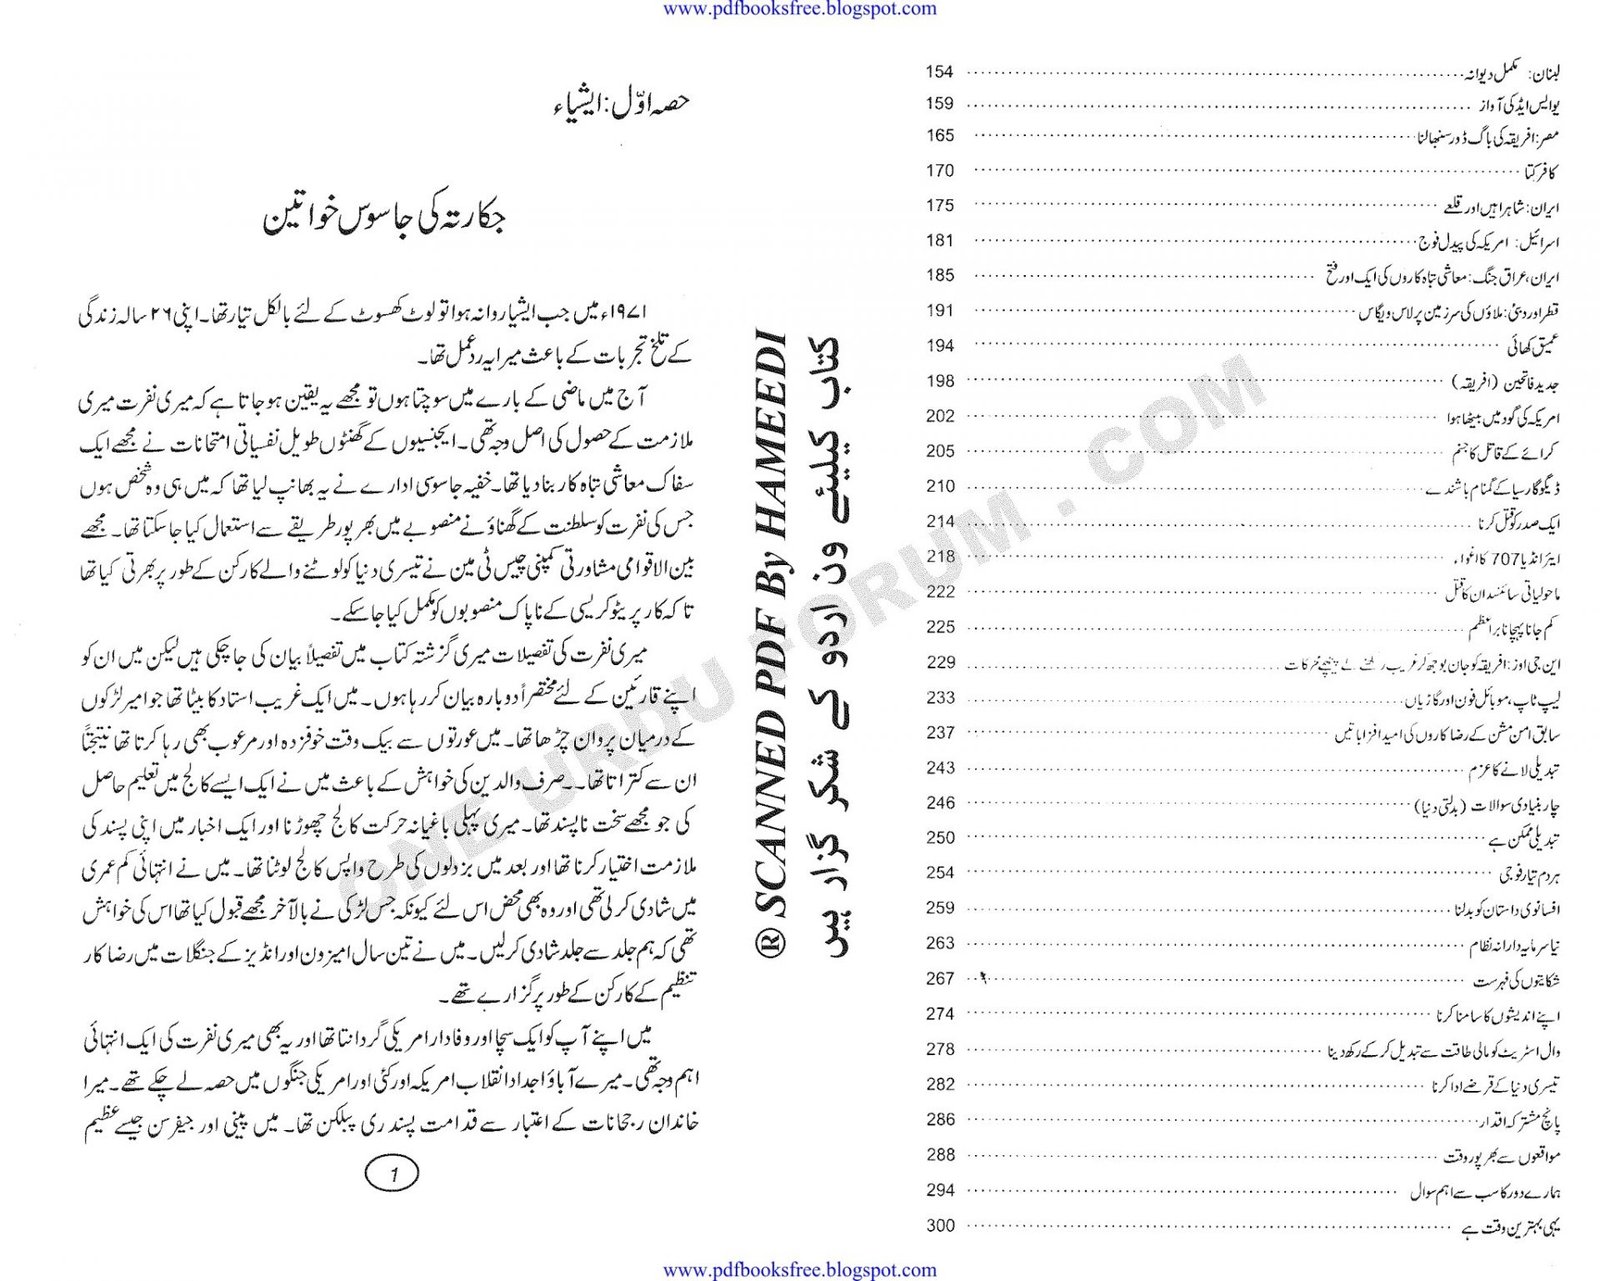 www.pdfbooksfree.blogspot.com
لبنان: مکمل دیوانہ 154
یو ایس ایڈ کی آواز 159
مصر: افریقہ کی باگ ڈور سنبھالنا 165
کافر کتا 170
ایران: شاہراہیں اور قلعے 175
اسرائیل: امریکہ کی پیدل فوج 181
ایران، عراق جنگ: معاشی تباہ کاروں کی ایک اور فتح 185
قطر اور دبئی: ملاؤں کی سرزمین پر لاس ویگاس 191
عمیق کھائی 194
جدید فاتحین (افریقہ) 198
امریکہ کی گود میں بیٹھا ہوا 202
کرائے کے قاتل کا جنم 205
ڈیگو گارسیا کے گمنام باشندے 210
ایک صدر کو قتل کرنا 214
ایئر انڈیا 707 کا اغواء 218
ماحولیاتی سائنسدان کا قتل 222
کم جانا پہچانا براعظم 225
این جی اوز: افریقہ کو جان بوجھ کر غریب رکھنے کے پیچھے محرکات 229
لیپ ٹاپ، موبائل فون اور گاڑیاں 233
سابق امن مشن کے رضا کاروں کی امید افزا باتیں 237
تبدیلی لانے کا عزم 243
چار بنیادی سوالات (بدلتی دنیا) 246
تبدیلی ممکن ہے 250
ہر دم تیار فوجی 254
افسانوی داستان کو بدلنا 259
نیا سرمایہ دارانہ نظام 263
شکایتوں کی فہرست 267
اپنے اندیشوں کا سامنا کرنا 274
وال اسٹریٹ کو مالی طاقت سے تبدیل کر کے رکھ دینا 278
تیسری دنیا کے قرضے ادا کرنا 282
پانچ مشترکہ اقدار 286
مواقعوں سے بھرپور وقت 288
ہمارے دور کا سب سے اہم سوال 294
یہی بہترین وقت ہے 300
® SCANNED PDF By HAMEEDI
کتاب کیلیئے ون اردو کے شکر گزار ہیں
ONE URDU FORUM . COM
حصہ اوّل: ایشیاء
جکارتہ کی جاسوس خواتین
۱۹۷۱ء میں جب ایشیا روانہ ہوا تو لوٹ کھسوٹ کے لئے بالکل تیار تھا۔ اپنی ۲۶ سالہ زندگی
کے تلخ تجربات کے باعث میرا یہ ردعمل تھا۔
آج میں ماضی کے بارے میں سوچتا ہوں تو مجھے یہ یقین ہو جاتا ہے کہ میری نفرت میری
ملازمت کے حصول کی اصل وجہ تھی۔ ایجنسیوں کے گھنٹوں طویل نفسیاتی امتحانات نے مجھے ایک
سفاک معاشی تباہ کار بنا دیا تھا۔ خفیہ جاسوسی ادارے نے یہ بھانپ لیا تھا کہ میں ہی وہ شخص ہوں
جس کی نفرت کو سلطنت کے گھناؤنے منصوبے میں بھرپور طریقے سے استعمال کیا جا سکتا تھا۔ مجھے
بین الاقوامی مشاورتی کمپنی چیس ٹی مین نے تیسری دنیا کو لوٹنے والے کارکن کے طور پر بھرتی کیا تھا
تاکہ کارپریٹوکریسی کے ناپاک منصوبوں کو مکمل کیا جا سکے۔
میری نفرت کی تفصیلات میری گزشتہ کتاب میں تفصیلاً بیان کی جا چکی ہیں لیکن میں ان کو
اپنے قارئین کے لئے مختصراً دوبارہ بیان کر رہا ہوں۔ میں ایک غریب استاد کا بیٹا تھا جو امیر لڑکوں
کے درمیان پروان چڑھا تھا۔ میں عورتوں سے بیک وقت خوفزدہ اور مرعوب بھی رہا کرتا تھا نتیجتاً
ان سے کتراتا تھا۔۔ صرف والدین کی خواہش کے باعث میں نے ایک ایسے کالج میں تعلیم حاصل
کی جو مجھے سخت ناپسند تھا۔ میری پہلی باغیانہ حرکت کالج چھوڑنا اور ایک اخبار میں اپنی پسند کی
ملازمت اختیار کرنا تھا اور بعد میں بزدلوں کی طرح واپس کالج لوٹنا تھا۔ میں نے انتہائی کم عمری
میں شادی کر لی تھی اور وہ بھی محض اس لئے کیونکہ جس لڑکی نے بالآخر مجھے قبول کیا تھا اس کی خواہش
تھی کہ ہم جلد سے جلد شادی کر لیں۔ میں نے تین سال امیزون اور انڈیز کے جنگلات میں رضا کار
تنظیم کے کارکن کے طور پر گزارے تھے۔
میں اپنے آپ کو ایک سچا اور وفادار امریکی گردانتا تھا اور یہ بھی میری نفرت کی ایک انتہائی
اہم وجہ تھی۔ میرے آباؤ اجداد انقلاب امریکہ اور کئی اور امریکی جنگوں میں حصہ لے چکے تھے۔ میرا
خاندان رجحانات کے اعتبار سے قدامت پسند ری پبلکن تھا۔ میں پینی اور جیفرسن جیسے عظیم
1
www.pdfbooksfree.blogspot.com